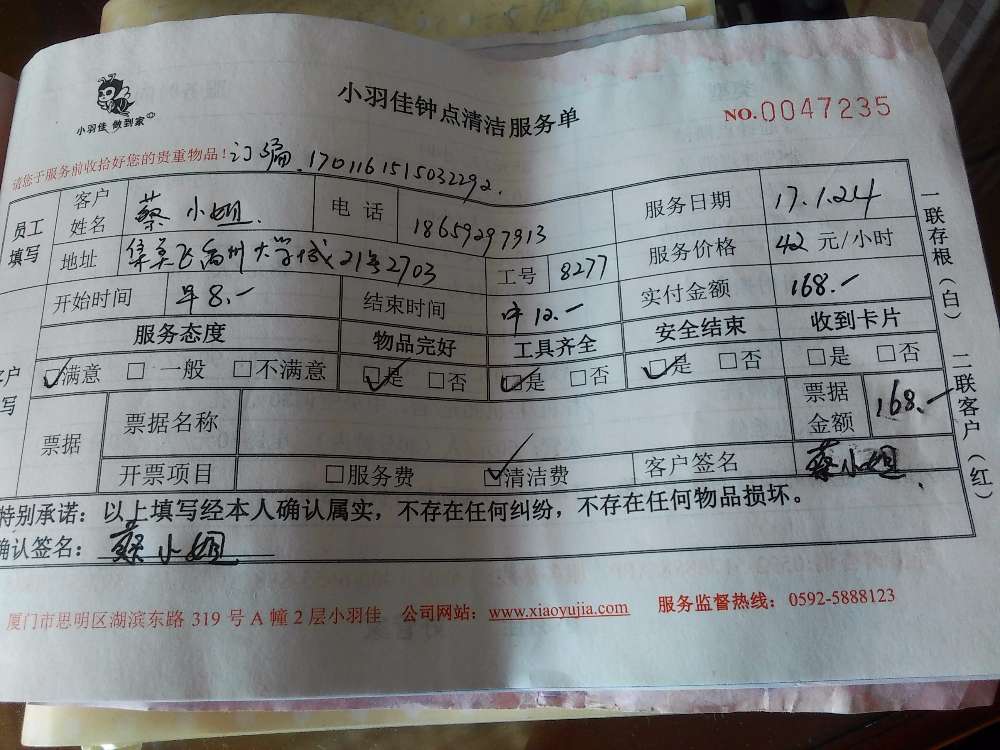 小羽佳 做到家
小羽佳钟点清洁服务单
NO.0047235
请您于服务前收拾好您的贵重物品！订编 170116151503229２.
员工填写
客户姓名 蔡小姐. 电话 18659297913 服务日期 17.1.24
地址 大学城21号2703 工号 8277 服务价格 42 元/小时
开始时间 早8.一 结束时间 中12.一 实付金额 168.一
服务态度 物品完好 工具齐全 安全结束 收到卡片
客户填写
☑满意 □一般 □不满意 ☑是 □否 ☑是 □否 ☑是 □否 □是 □否
票据 票据名称 票据金额 168.一
开票项目 □服务费 ☑清洁费 客户签名 蔡小姐
特别承诺：以上填写经本人确认属实，不存在任何纠纷，不存在任何物品损坏。
确认签名：蔡小姐
一联存根（白） 二联客户（红）
厦门市思明区湖滨东路 319 号 A 幢 2 层小羽佳 公司网站：www.xiaoyujia.com 服务监督热线：0592-5888123